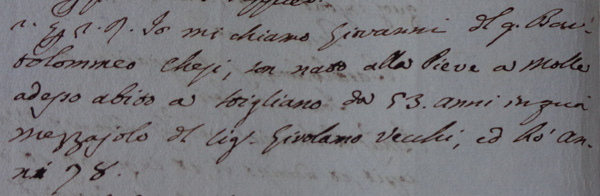 Io mi chiamo Giovanni del q. Bar-
tolommeo Chesi, son nato alla Pieve a Molli
adesso abito a Stigliano da 53. anni in quà
mezzajolo del Sig.r Girolamo Vecchi, ed hò an-
ni 78.